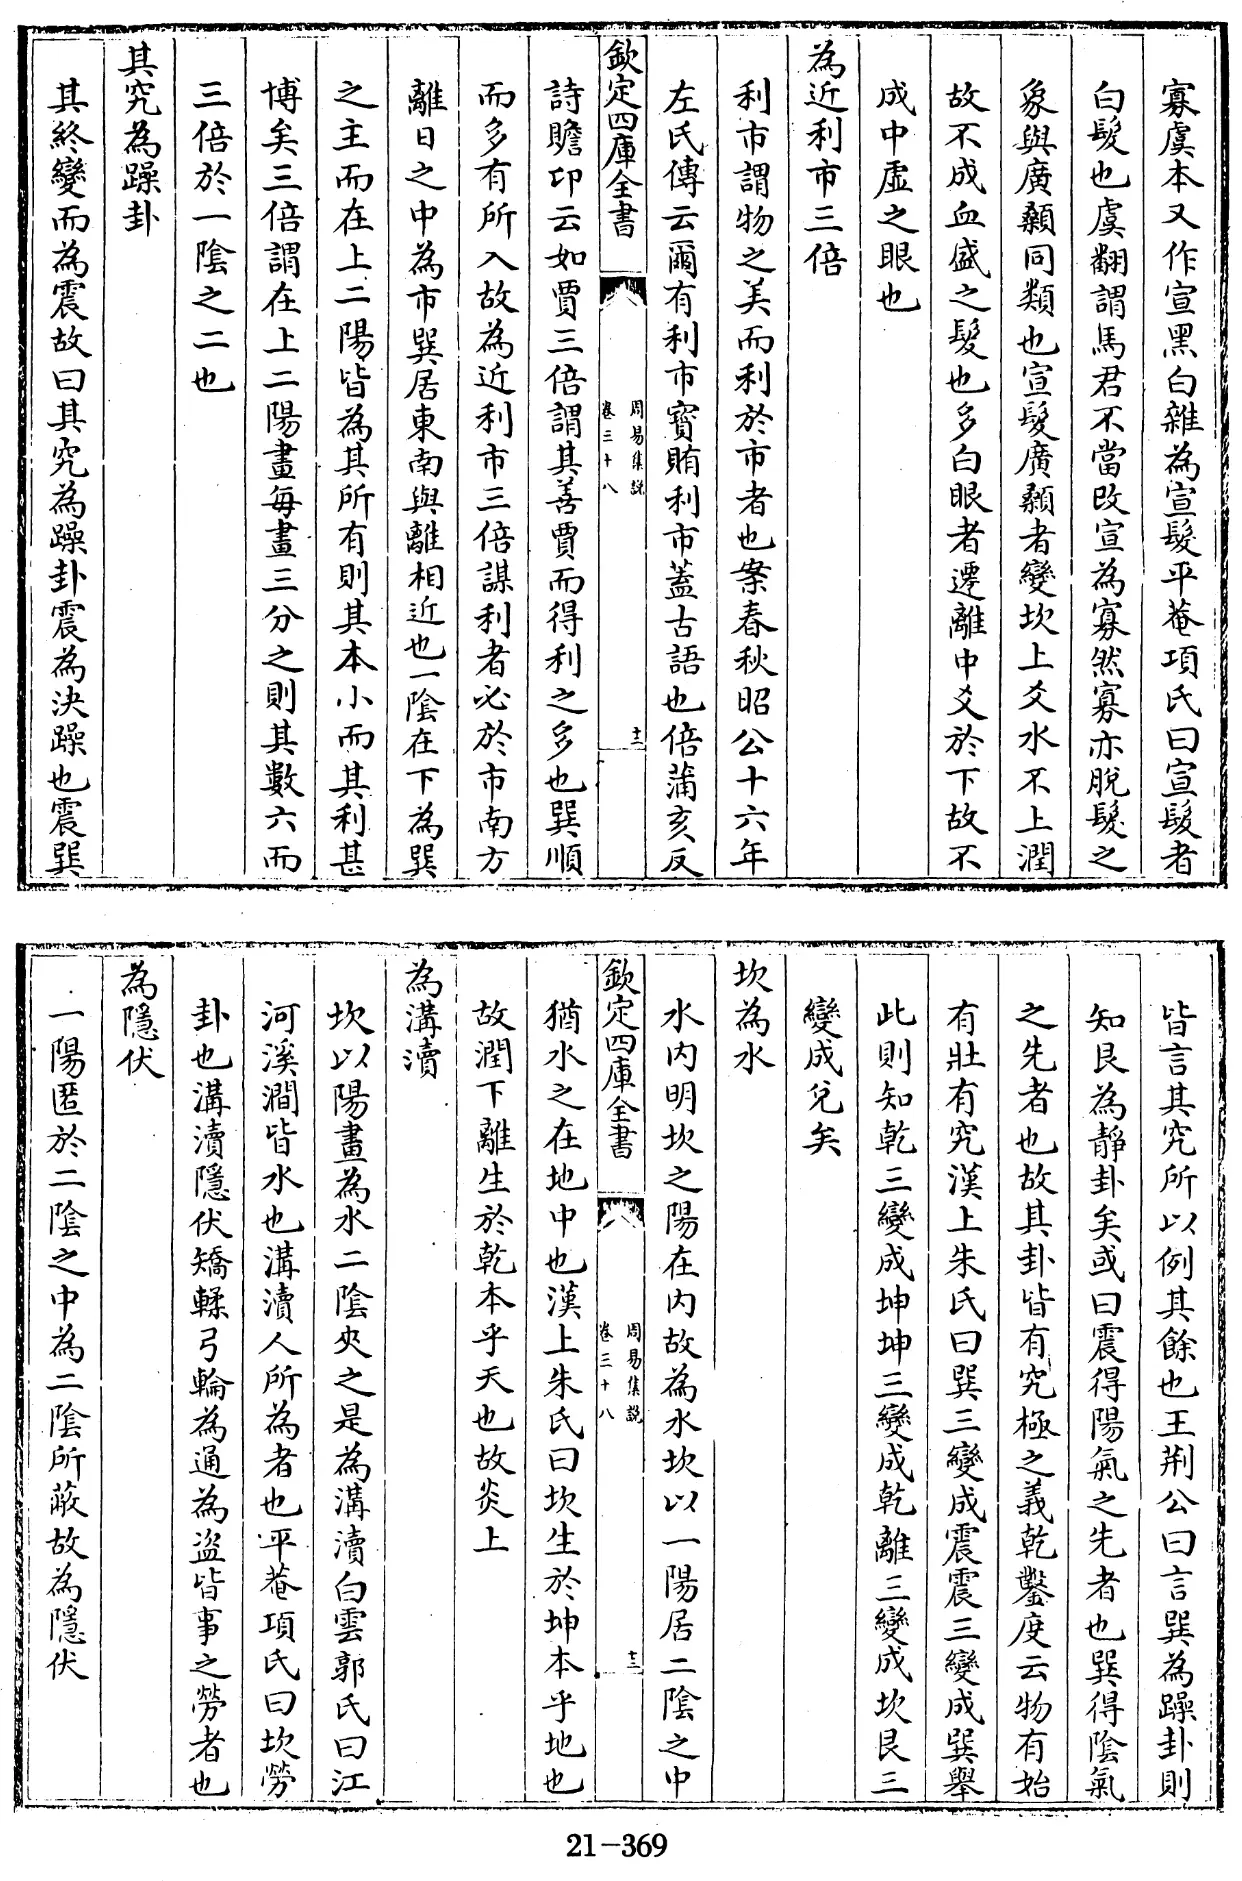 寡虞本又作宣黑白雜為宣髮平菴項氏曰宣髮者
白髮也虞翻謂馬君不當改宣為寡然寡亦脫髮之
象與廣顙同類也宣髮廣顙者變坎上爻水不上潤
故不成血盛之髮也多白眼者遷離中爻於下故不
成中虛之眼也
為近利市三倍
利市謂物之美而利於市者也案春秋昭公十六年
左氏傳云爾有利市寳賄利市蓋古語也倍蒲亥反
欽定四庫全書
周易集説
卷三十八
十二
詩瞻卬云如賈三倍謂其善賈而得利之多也巽順
而多有所入故為近利市三倍謀利者必於市南方
離日之中為市巽居東南與離相近也一陰在下為巽
之主而在上二陽皆為其所有則其本小而其利甚
博矣三倍謂在上二陽畫每畫三分之則其數六而
三倍於一陰之二也
其究為躁卦
其終變而為震故曰其究為躁卦震為決躁也震巽
皆言其究所以例其餘也王荆公曰言巽為躁卦則
知艮為靜卦矣或曰震得陽氣之先者也巽得陰氣
之先者也故其卦皆有究極之義乾鑿度云物有始
有壯有究漢上朱氏曰巽三變成震震三變成巽舉
此則知乾三變成坤坤三變成乾離三變成坎艮三
變成兌矣
坎為水
水内明坎之陽在内故為水坎以一陽居二陰之中
欽定四庫全書
周易集説
卷三十八
十三
猶水之在地中也漢上朱氏曰坎生於坤本乎地也
故潤下離生於乾本乎天也故炎上
為溝瀆
坎以陽畫為水二陰夾之是為溝瀆白雲郭氏曰江
河溪澗皆水也溝瀆人所為者也平菴項氏曰坎勞
卦也溝瀆隱伏矯輮弓輪為通為盜皆事之勞者也
為隱伏
一陽匿於二陰之中為二陰所蔽故為隱伏
21-369